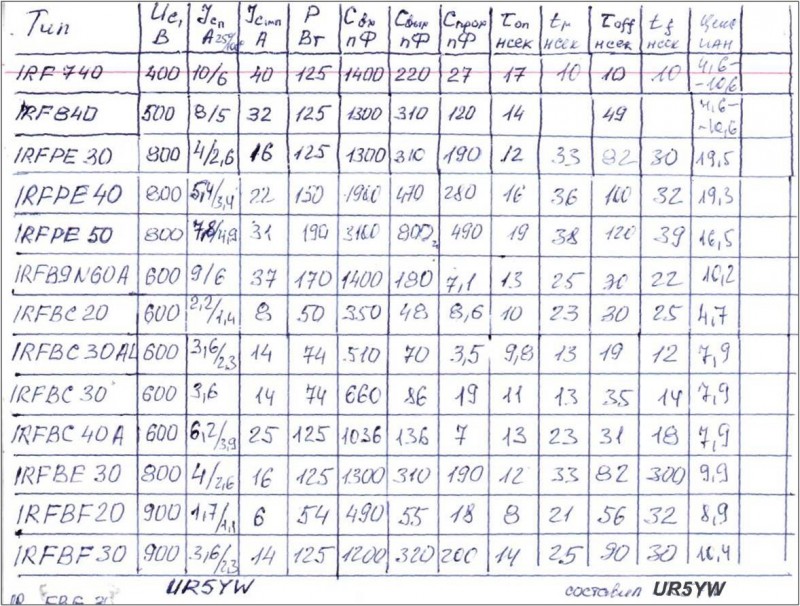 Тип Uси, В Iсп А 25°/100° Iс имп А P Вт Cвх пФ Cвых пФ Cпрох пФ Tоп нсек tr нсек Toff нсек tf нсек Цена UAH
IRF 740 400 10/6 40 125 1400 220 27 17 10 10 10 4,6--10,6
IRF840 500 8/5 32 125 1300 310 120 14 49 4,6--10,6
IRFPE 30 800 4/2,6 16 125 1300 310 190 12 33 82 30 19,5
IRFPE 40 800 5,4/3,4 22 150 1900 470 280 16 36 100 32 19,3
IRFPE 50 800 7,8/4,9 31 190 3100 800 490 19 38 120 39 16,5
IRFB9N60A 600 9/6 37 170 1400 180 7,1 13 25 30 22 10,2
IRFBC 20 600 2,2/1,4 8 50 350 48 8,6 10 23 30 25 4,7
IRFBC 30AL 600 3,6/2,3 14 74 510 70 3,5 9,8 13 19 12 7,9
IRFBC 30 600 3,6 14 74 660 86 19 11 13 35 14 7,9
IRFBC 40 A 600 6,2/3,9 25 125 1036 136 7 13 23 31 18 7,9
IRFBE 30 800 4/2,6 16 125 1300 310 190 12 33 82 300 9,9
IRFBF20 900 1,7/1,1 6 54 490 55 18 8 21 56 32 8,9
IRFBF30 900 3,6/2,3 14 125 1200 320 200 14 25 90 30 10,4
UR5YW составил UR5YW